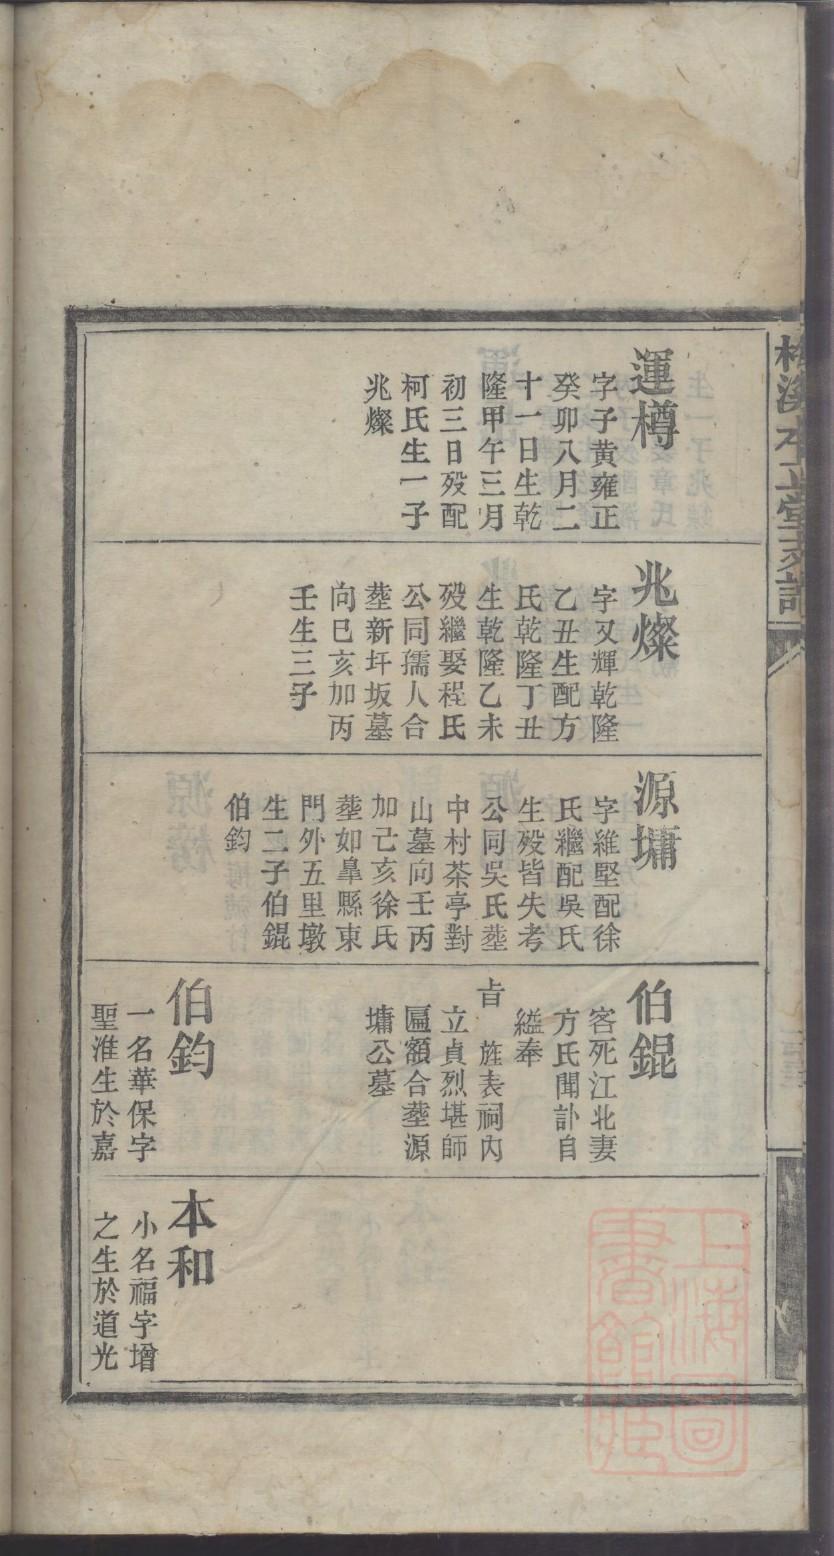 運樽
字子黄雍正
癸卯八月二
十一日生乾
隆甲午三月
初三日殁配
柯氏生一子
兆燦
兆燦
字又輝乾隆
乙丑生配方
氏乾隆丁丑
生乾隆乙未
殁繼娶程氏
公同孺人合
塟新圩坂墓
向巳亥加丙
壬生三子
源墉
字維堅配徐
氏繼配吳氏
生殁皆失考
公同吳氏塟
中村茶亭對
山墓向壬丙
加己亥徐氏
塟如臯縣東
門外五里墩
生二子伯錕
伯鈞
伯錕
客死江北妻
方氏聞訃自
縊奉
旨旌表祠內
立貞烈堪師
匾額合塟源
墉公墓
伯鈞
一名華保字
聖淮生於嘉
本和
小名福字增
之生於道光
上海圖
書館藏